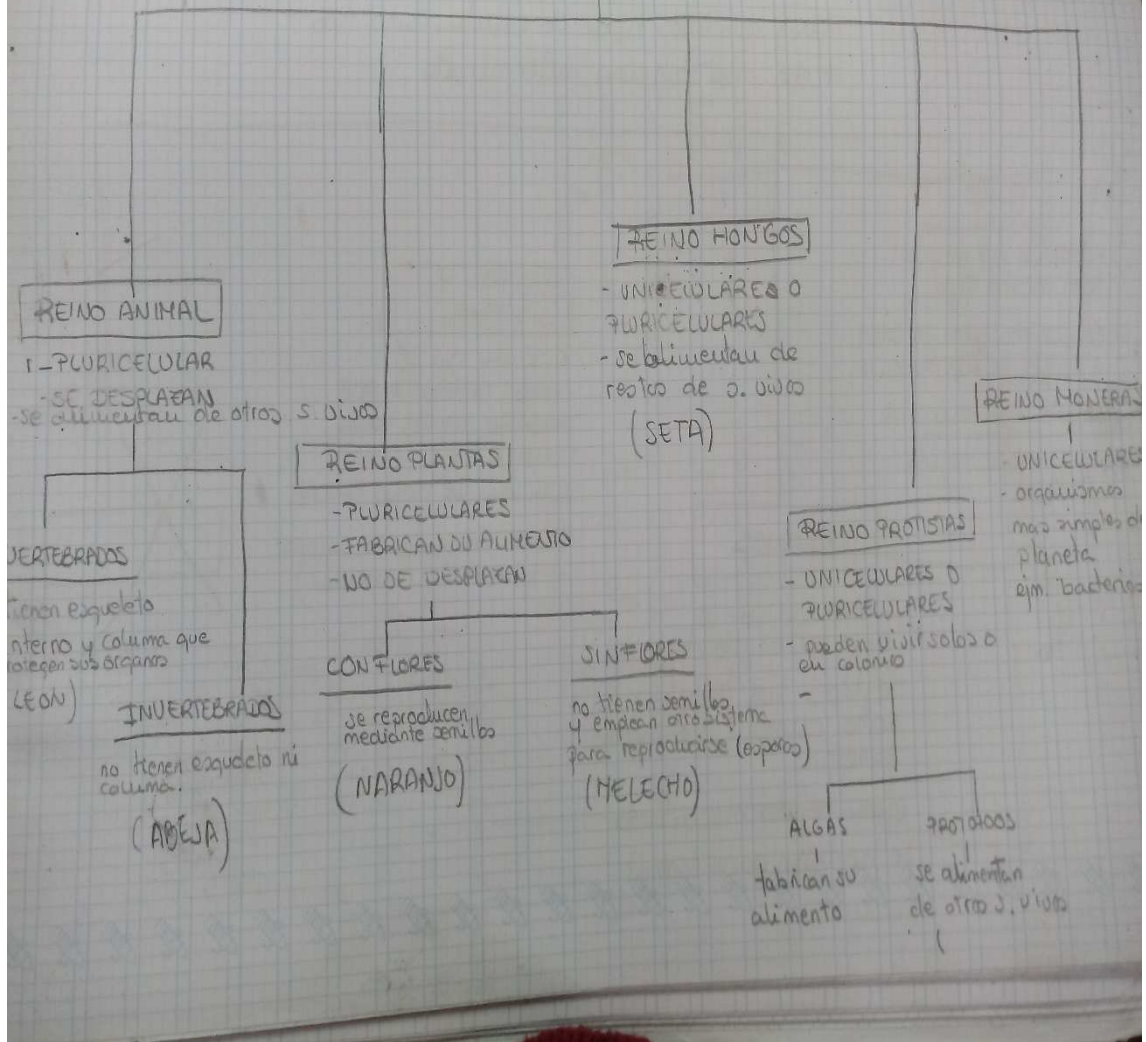 REINO ANIMAL
- PLURICELULAR
- SE DESPLAZAN
- se alimentan de otros s. vivos
VERTEBRADOS
tienen esqueleto
interno y columa que
protegen sus órganos
LEON)
INVERTEBRADOS
no tienen esqueleto ni
columna.
(ABEJA)
REINO PLANTAS
- PLURICELULARES
- FABRICAN SU ALIMENTO
- NO SE DESPLAZAN
CON FLORES
se reproducen
mediante semillas
(NARANJO)
SIN FLORES
no tienen semillas
y emplean otro sistema
para reproducirse (esporas)
(HELECHO)
REINO HONGOS
- UNICELULARES O
PLURICELULARES
- se alimentan de
restos de s. vivos
(SETA)
REINO PROTISTAS
- UNICELULARES O
PLURICELULARES
- pueden vivir solos o
en colonia
-
ALGAS
fabrican su
alimento
PROTOZOOS
se alimentan
de otros s. vivos
(
REINO MONERAS
UNICELULARES
- organismos
mas simples del
planeta
ejm. bacterias